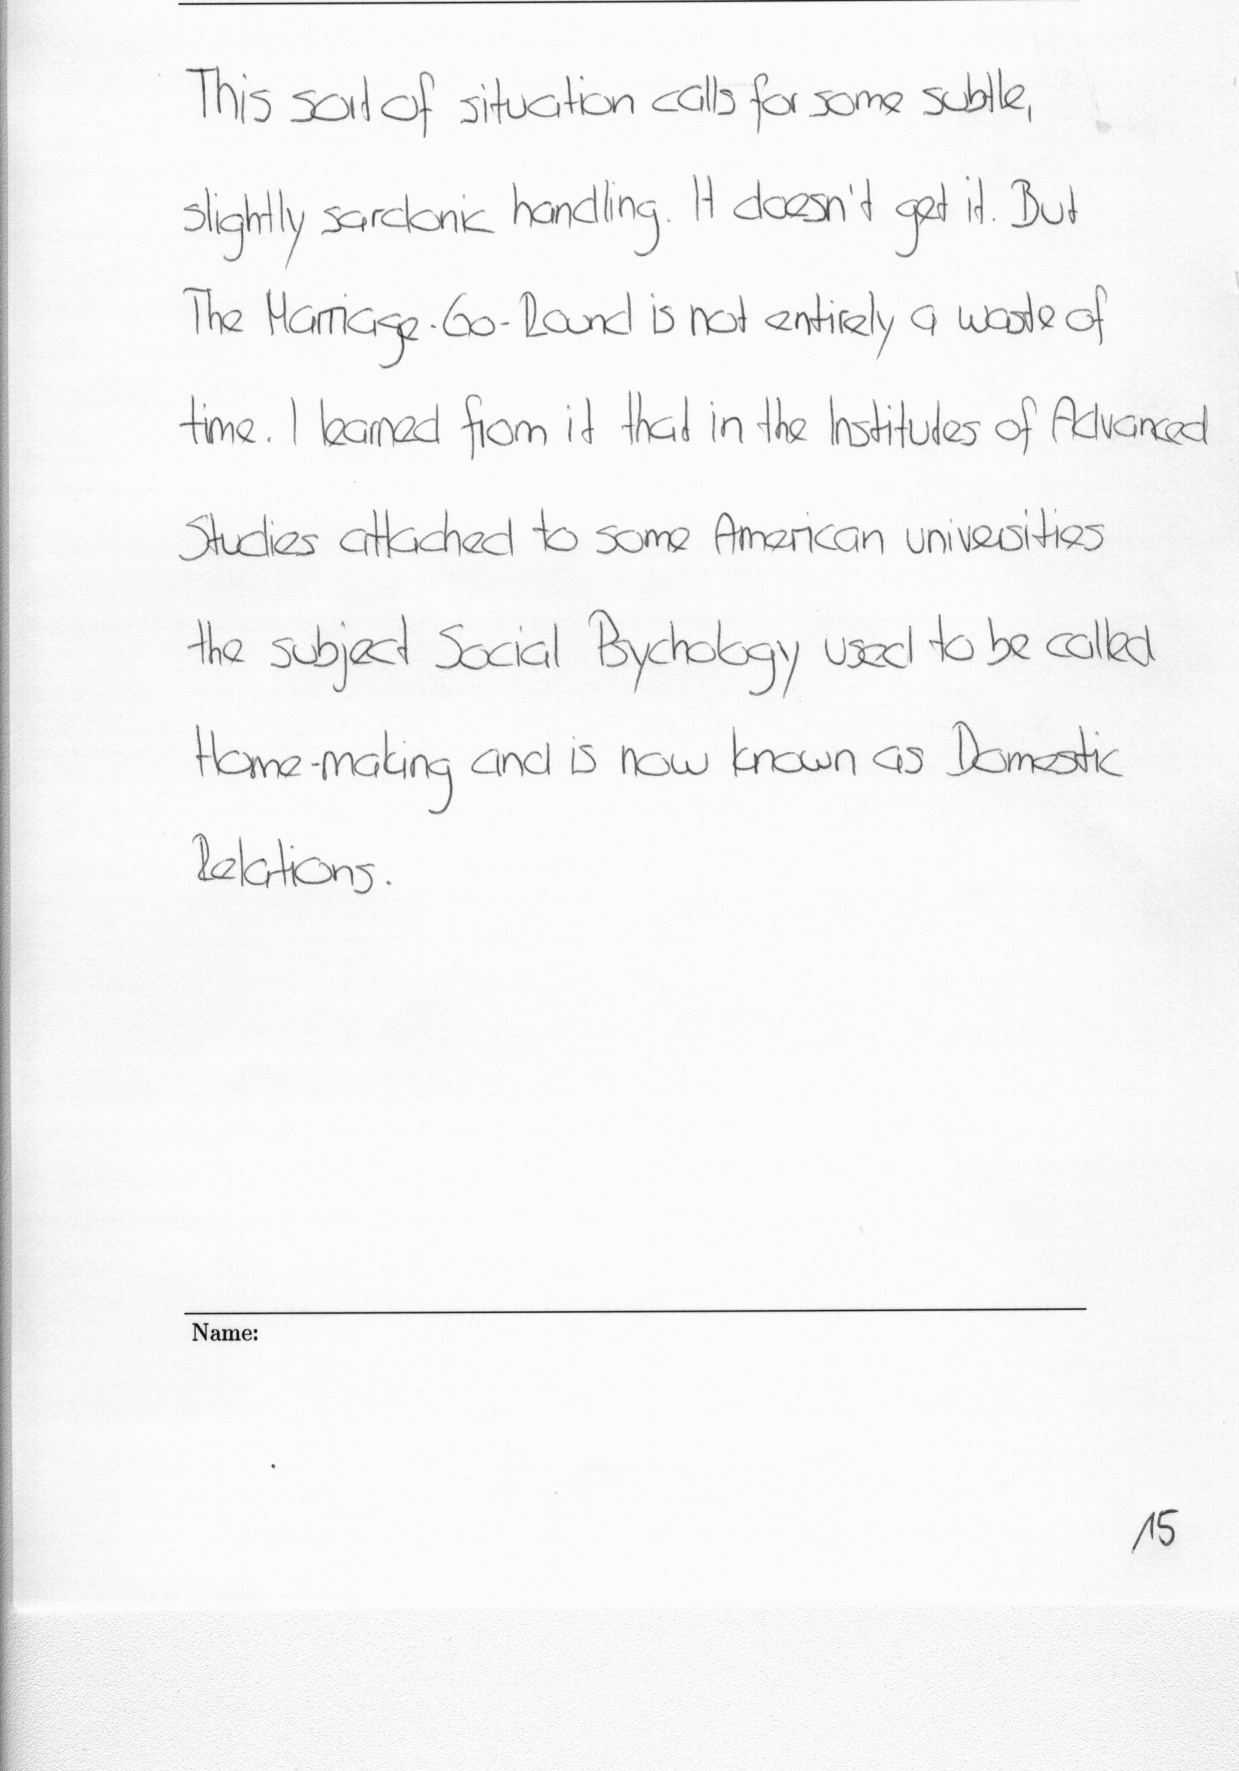 This sort of situation calls for some subtle,
slightly sardonic handling. It doesn't get it. But
The Marriage-Go-Round is not entirely a waste of
time. I learned from it that in the Institutes of Advanced
Studies attached to some American universities
the subject Social Psychology used to be called
Home-making and is now known as Domestic
Relations.
Name:
15